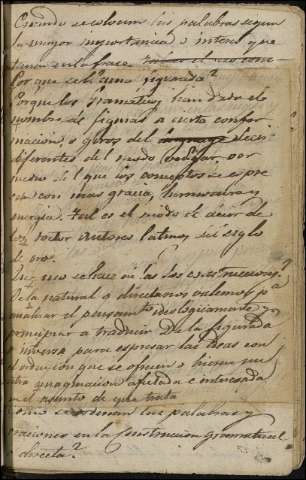 Cuando se colocan las palabras segun
la mayor importancia o interes que
tienen en la frase
Por que se llama figurada?
Porque los Gramaticos han dado el
nombre de figuras a cierta confor-
macion, o giros del lenguage
diferentes del modo vulgar, por
medio del que los conceptos se espre-
san con mas gracia, hermosura y
energia. Tal es el modo de decir de
los autores latinos del siglo
de oro.
Que uso se hace de las dos construcciones?
De la natural o directa nos valemos pa
analizar el pensamto ideologicamente y
principiar a traducir. De la figurada
o inversa para espresar las ideas con
el orden con que se ofrecen o hieren nues-
tra imaginacion afectada e interesada
en el asunto de que trata
Como se ordenan las palabras y
oraciones en la construccion gramatical
directa?